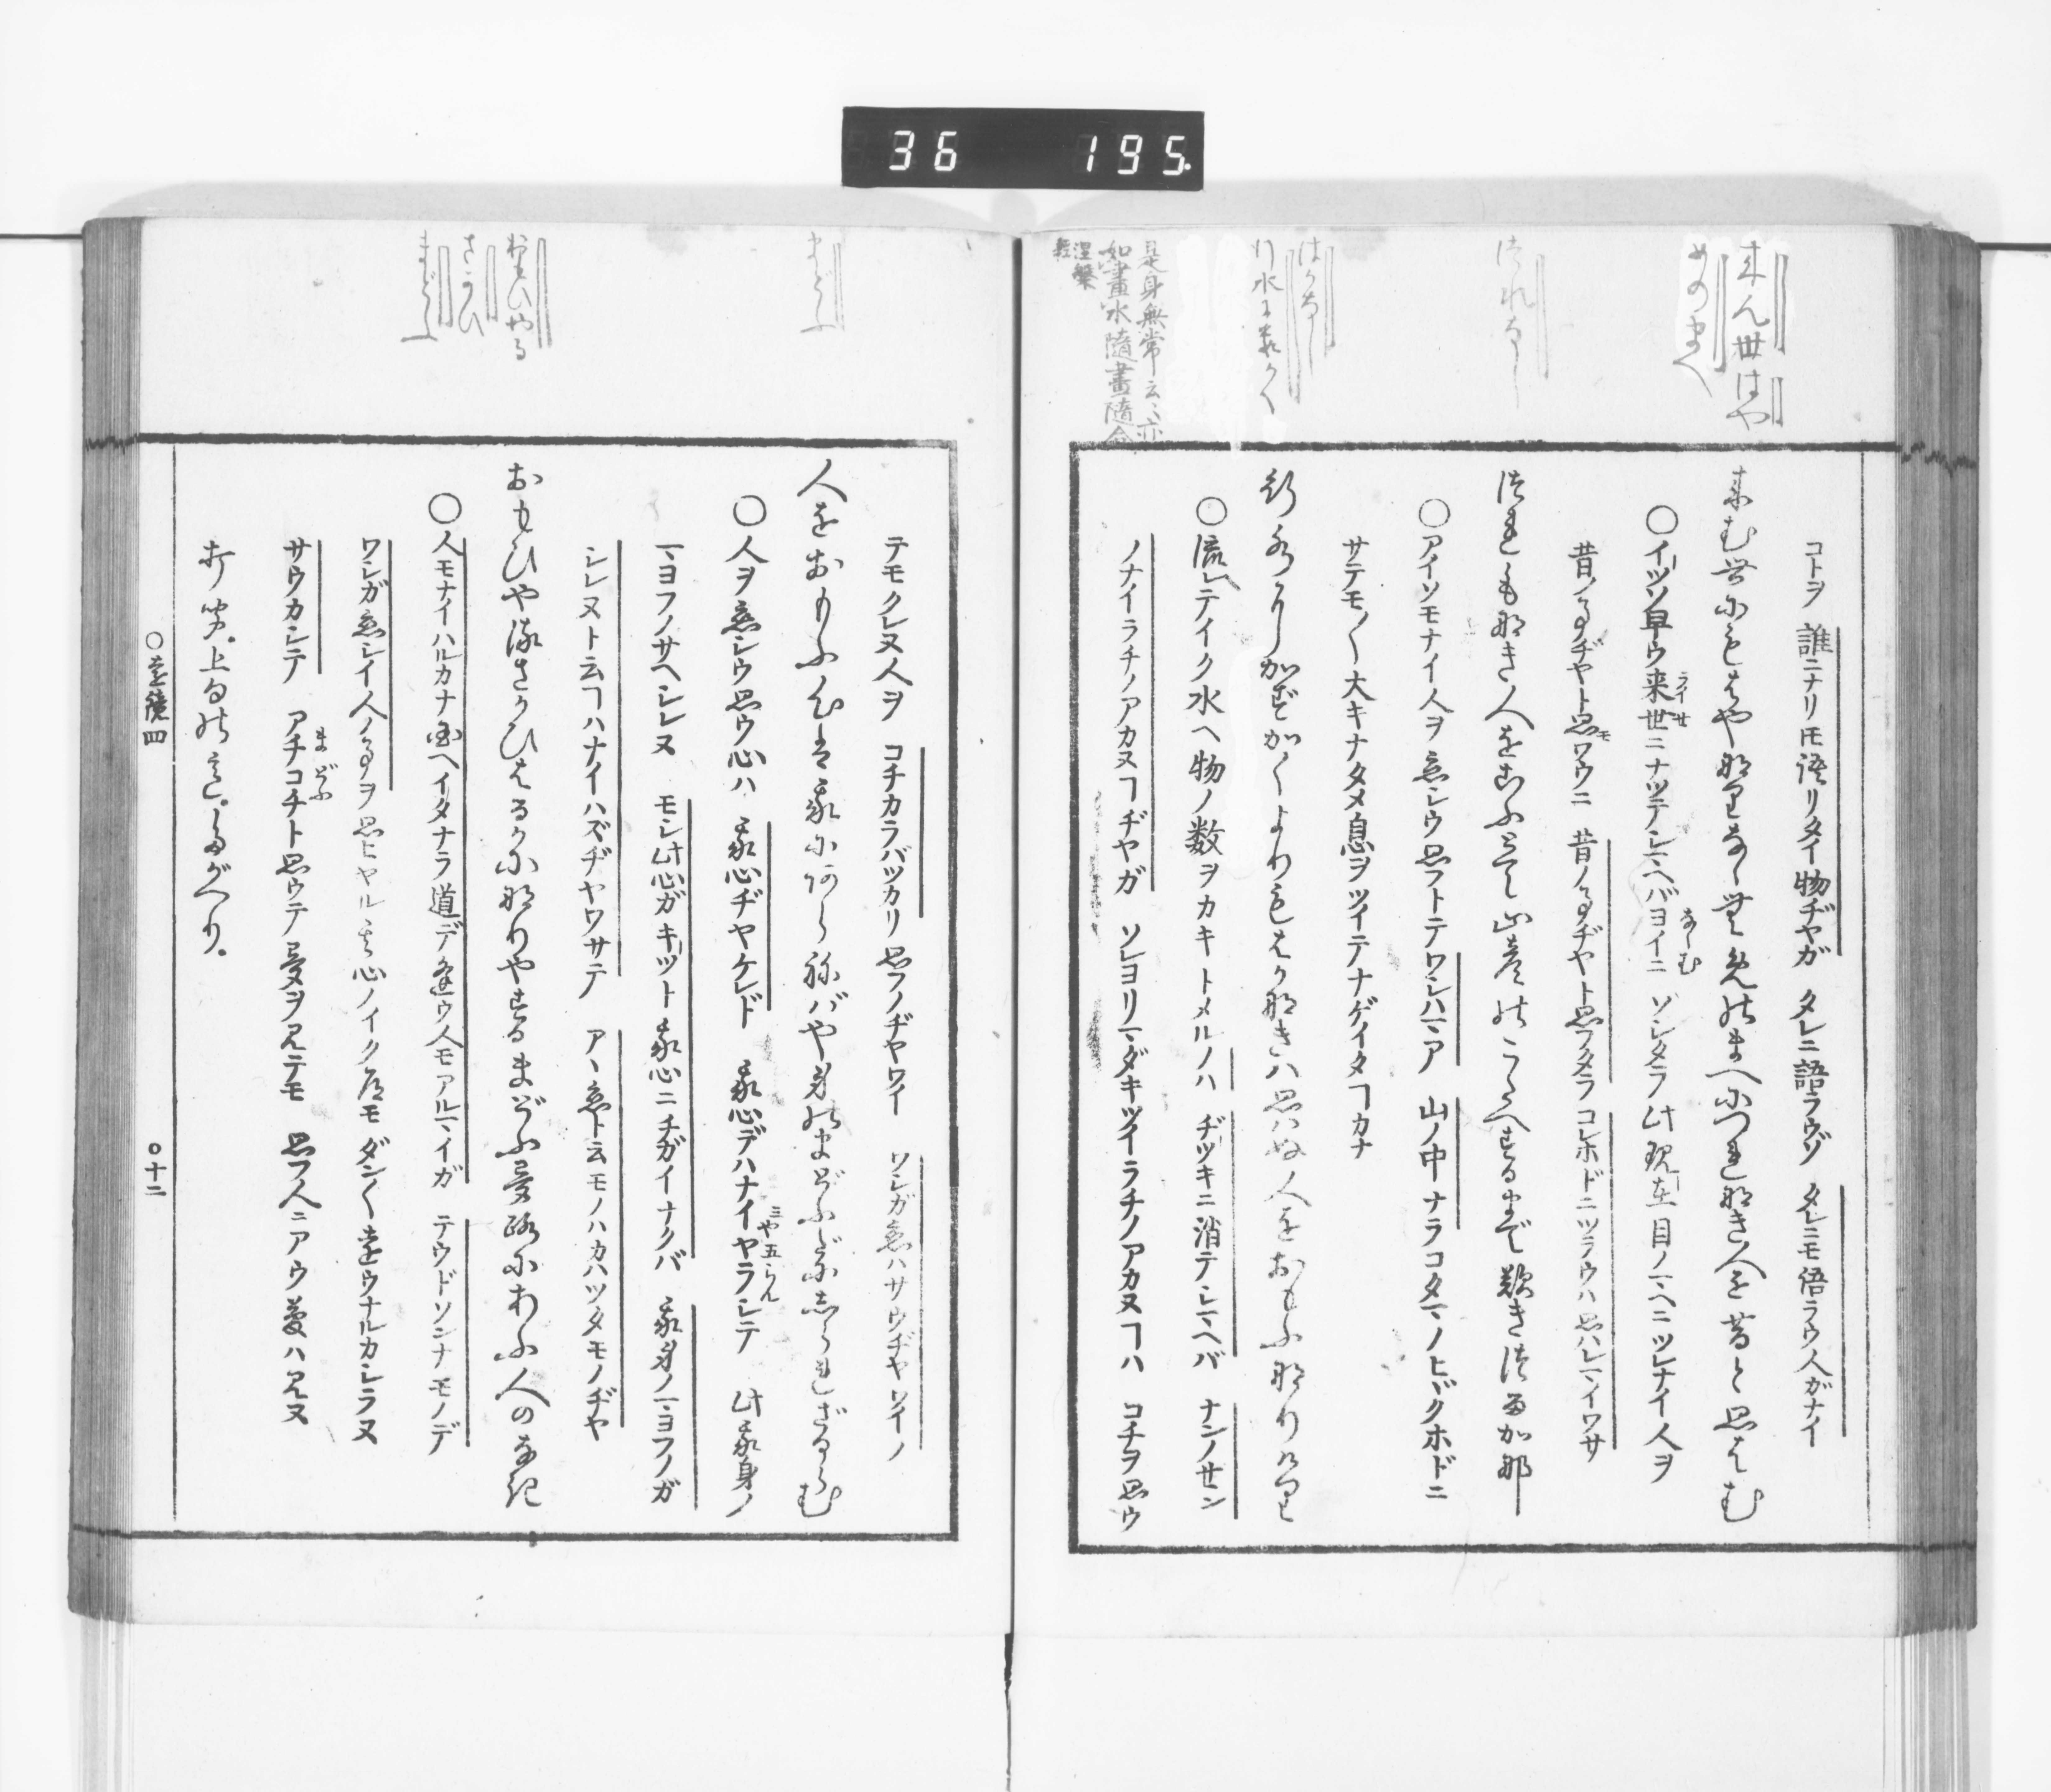 36 195.
来ん世はや
めのまへ
つれなし
はかなし
行水に数かく
是身無常云々亦
如畫水隨畫隨合
涅槃
経
コトヲ 誰ニナリトモ語リタイ物ヂヤガ タレニ語ラウゾ タレニモ語ラウ人ガナイ
来む世にもはや那りなゝ無め乃まへにつれ那き人を昔と思はむ
○イツソ早ウ来世ニナツテシマヘバヨイニ ソシタラ此現在目ノマヘニツレナイ人ヲ
ライセ
なゝむ
昔ノ事ヂヤト思ワウニ 昔ノ事ヂヤト思フタラ コレホドニツラウハ思ハレマイワサ
つれも那き人をこふとて山彦乃こたへするまで歎きつる加那
○アイソモナイ人ヲ恋シウ思フトテワシハマア 山ノ中ナラコタマノヒヾクホドニ
サテモ〱大キナタメ息ヲツイテナゲイタヿカナ
行水に加ず加くよりもはか那きハ思ハぬ人をおもふ那りけり
○流レテイク水ヘ物ノ数ヲカキトメルノハ ヂツキニ消テシマヘバ ナンノセン
ノナイラチノアカヌヿヂヤガ ソレヨリマダキツイラチノアカヌヿハ コチヲ思ウ
まどふ
おもひやる
さかひ
まどふ
テモクレヌ人ヲ コチカラバツカリ思フノヂヤワイ ワシガ恋ハサウヂヤワイノ
人をおもふ心は我にあらねバや身乃まどふだに志られざるらむ
○人ヲ恋シウ思ウ心ハ 我心ヂヤケレド 我心デハナイヤラシテ 此我身ノ
マヨフノサヘシレヌ モシ此心ガキツト我心ニチガイナクバ 我身ノマヨフノガ
シレヌト云ヿハナイハズヂヤワサテ アヽ恋ト云モノハカハツタモノヂヤ
おもひやるさかひはるかに那りやするまどふ夢路にあふ人のなき
○人モナイハルカナ国ヘイタナラ道デ逢ウ人モアルマイガ テウドソンナモノデ
ワシガ恋シイ人ノ事ヲ思ヒヤル其心ノイク所モ ダン〱遠ウナルカシラヌ
サウカシテ アチコチト思ウテ夢ヲ見テモ 思フ人ニアウ夢ハ見ヌ
まどふ
打聞。上句乃
○遠鏡四
○十二